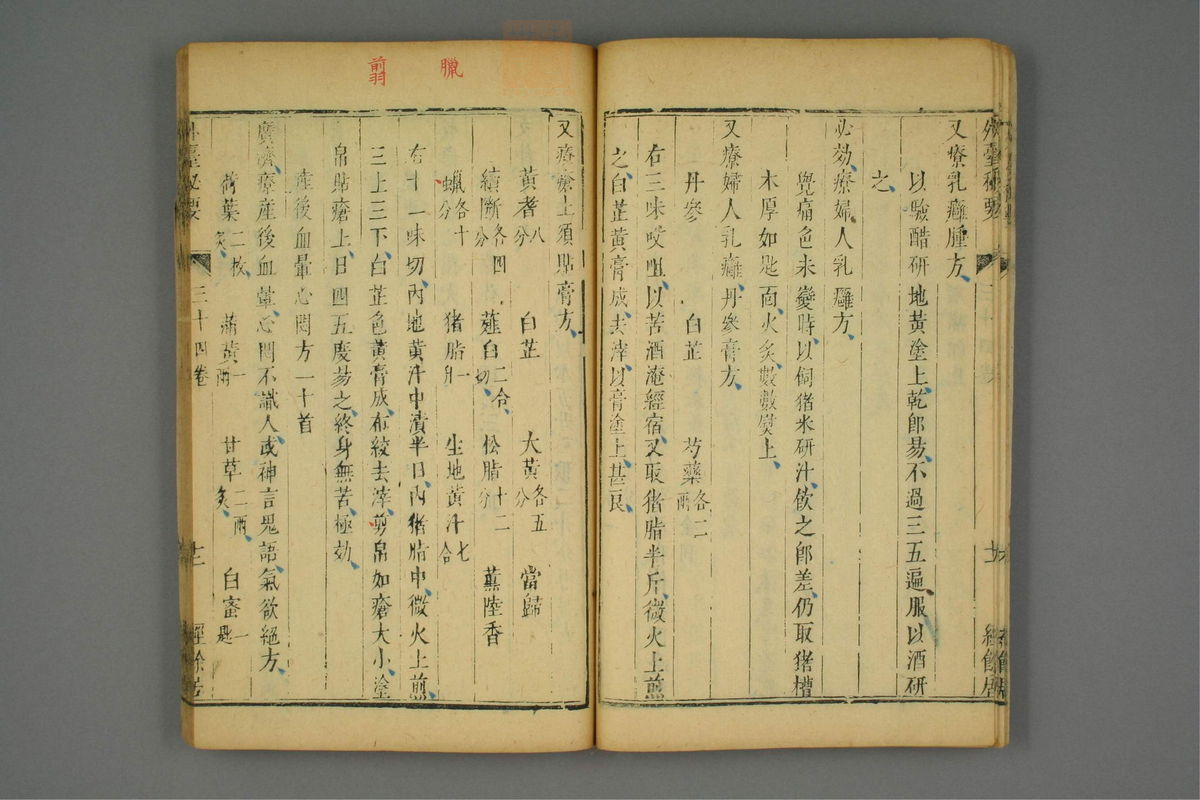 外臺秘要
又療乳癰腫方
以驗醋研地黃塗上乾卽易不過三五遍服以酒研
之
必効療婦人乳癰方
覺痛色未變時以飼猪米研汁飲之卽差仍取猪槽
木厚如匙面火炙數數熨上
又療婦人乳癰丹參膏方
丹參 白芷 芍藥各二兩
右三味㕮咀以苦酒淹經宿又取猪脂半斤微火上煎
之白芷黃膏成去滓以膏塗上甚良
臘
翦
又療瘡上須貼膏方
黃耆八分 白芷 大黃各五分 當歸
續斷各四分 薤白二合切 松脂十二分 薰陸香
蠟各十分 猪脂一升 生地黃汁七合
右十一味切內地黃汁中漬半日內猪脂中微火上煎
三上三下白芷色黃膏成布絞去滓剪帛如瘡大小塗
帛貼瘡上日四五度昜之終身無苦極効
産後血暈心悶方一十首
廣濟療産後血暈心悶不識人或神言鬼語氣欲絕方
荷葉二枚炙 蒲黃一兩 甘草二兩炙 白蜜一匙
外臺秘要 三十四卷 經餘居